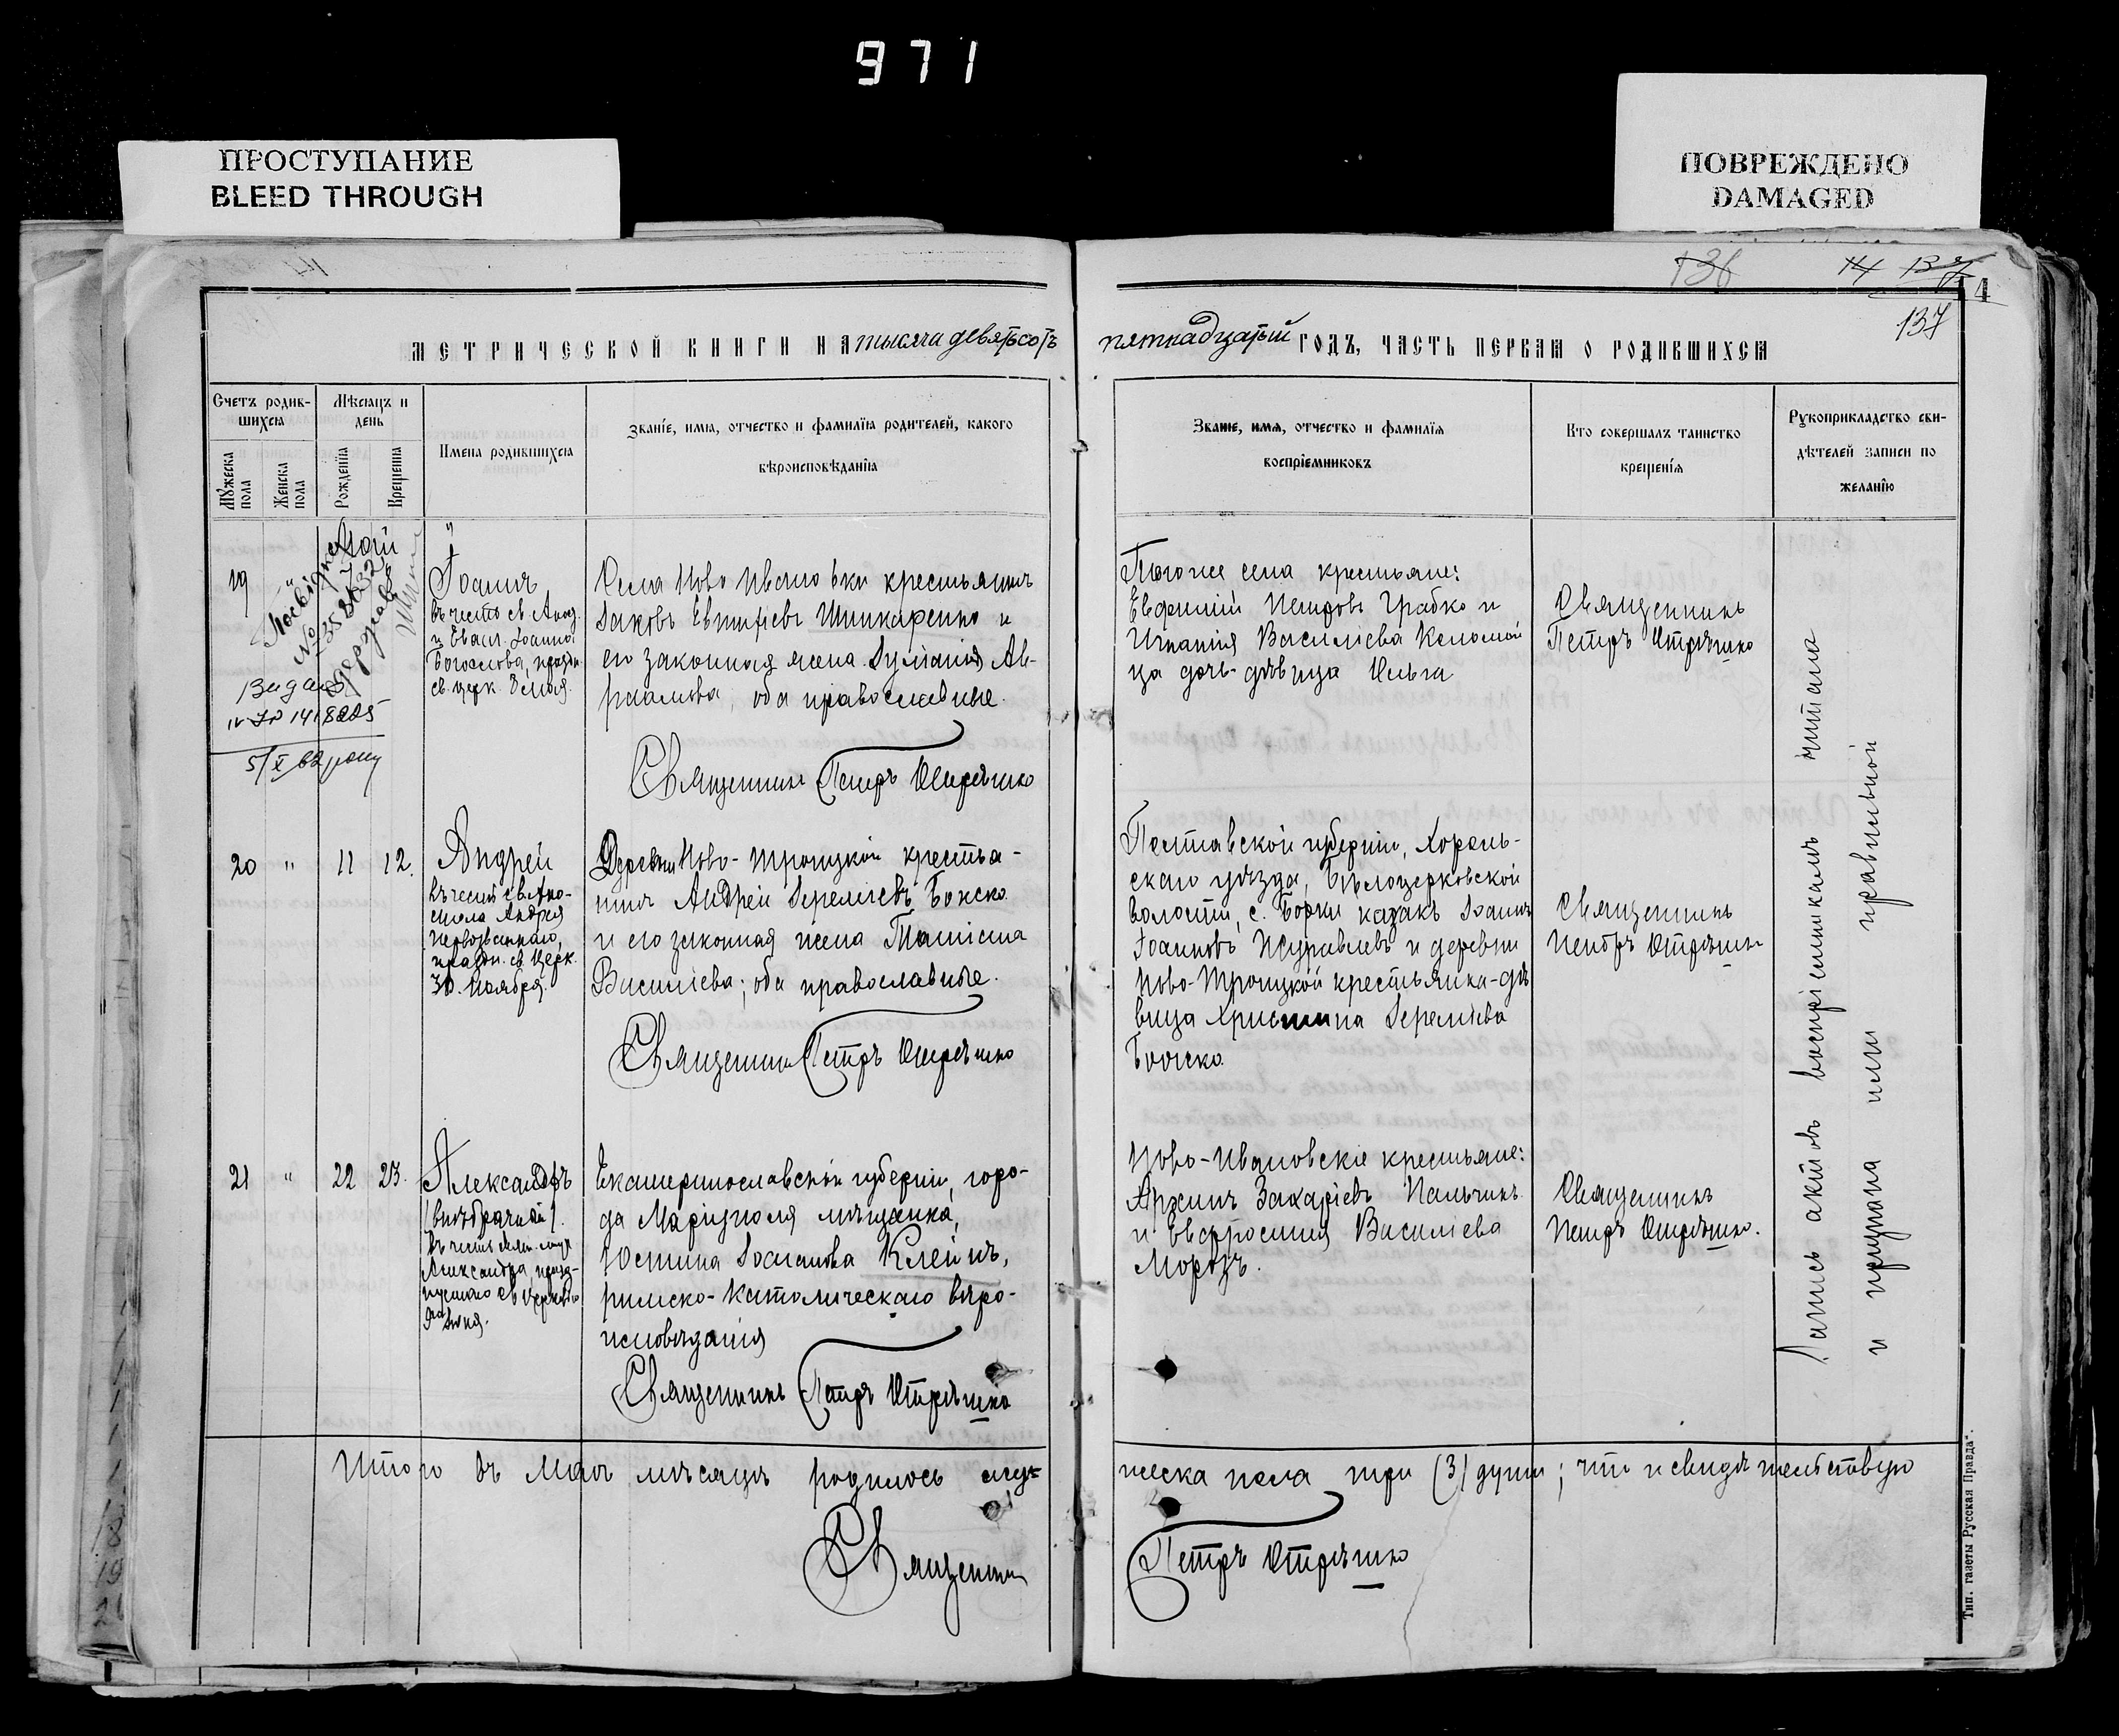 971
ПРОСТУПАНИЕ
BLEED THROUGH
ПОВРЕЖДЕНО
DAMAGED
136
14
137
4
137
МЕТРИЧЕСКОЙ КНИГИ НА тысяча девятьсотъ
пятнадцатый ГОДЪ, ЧАСТЬ ПЕРВАЯ О РОДИВШИХСЯ
Счетъ родив-
шихся
Мѣсяцъ и
день
Мужеска
пола
Женска
пола
Рожденія
Крещенія
Имена родившихся
Званіе, имя, отчество и фамилія родителей, какого
вѣроисповѣданія
Званіе, имя, отчество и фамилія
воспріемниковъ
Кто совершалъ таинство
крещенія
Рукоприкладство сви-
дѣтелей записи по
желанію
19
"
Май
7
Видано
5/X 62 року
Іоаннъ
въ честь св. Апос.
и Еванг. Іоанна
Богослова, праздн.
св. церк. 8 мая.
Села Ново Ивановки крестьянинъ
Іаковъ Евтиѳіевъ Шинкаренко и
его законная жена Іуліанія Ав-
раамова, оба православные.
Священникъ Петръ Стрѣшко
Того же села крестьяне:
Евфимій Петровъ Грабко и
Игнатія Васильева
ца дочь-дѣвица Ольга
Священникъ
Петръ Стрѣшко
20
"
11
12.
Андрей
въ честь св. Апо-
стола Андрея
Первозваннаго,
праздн. св. Церк.
30. Ноября.
Деревни Ново-Троицкой крестья-
нинъ Андрей Іереміевъ Божко
и его законная жена Таисія
Василіева; оба православные.
Священникъ Петръ Стрѣшко
Полтавской губерніи, Хороль-
скаго уѣзда, Бѣлоцерковской
волости, с. Борки казакъ Іоаннъ
Іоанновъ Журавлевъ и деревни
Ново-Троицкой крестьянка-дѣ
вица Христина Іереміева
Божко.
Священникъ
Петръ Стрѣшко
21
"
22
23.
Александръ
(внѣбрачный).
Александра, празд-
Екатеринославской губерніи, горо-
да Маріуполя мѣщанка,
Юстина Іосифова Клейнъ,
римско-католическаго вѣро-
исповѣданія
Священникъ Петръ Стрѣшко
Ново-Ивановскіе крестьяне:
Захаріевъ Пальчикъ
и Евфросинія Василіева
Морозъ.
Священникъ
Петръ Стрѣшко.
Запись актовъ воспріемникамъ читала
и признана ими правильной
Итого въ Маѣ мѣсяцѣ родилось муж-
ческа пола три (3) души; что и свидѣтельствую
Священникъ
Петръ Стрѣшко
Тип. газеты Русская Правда".